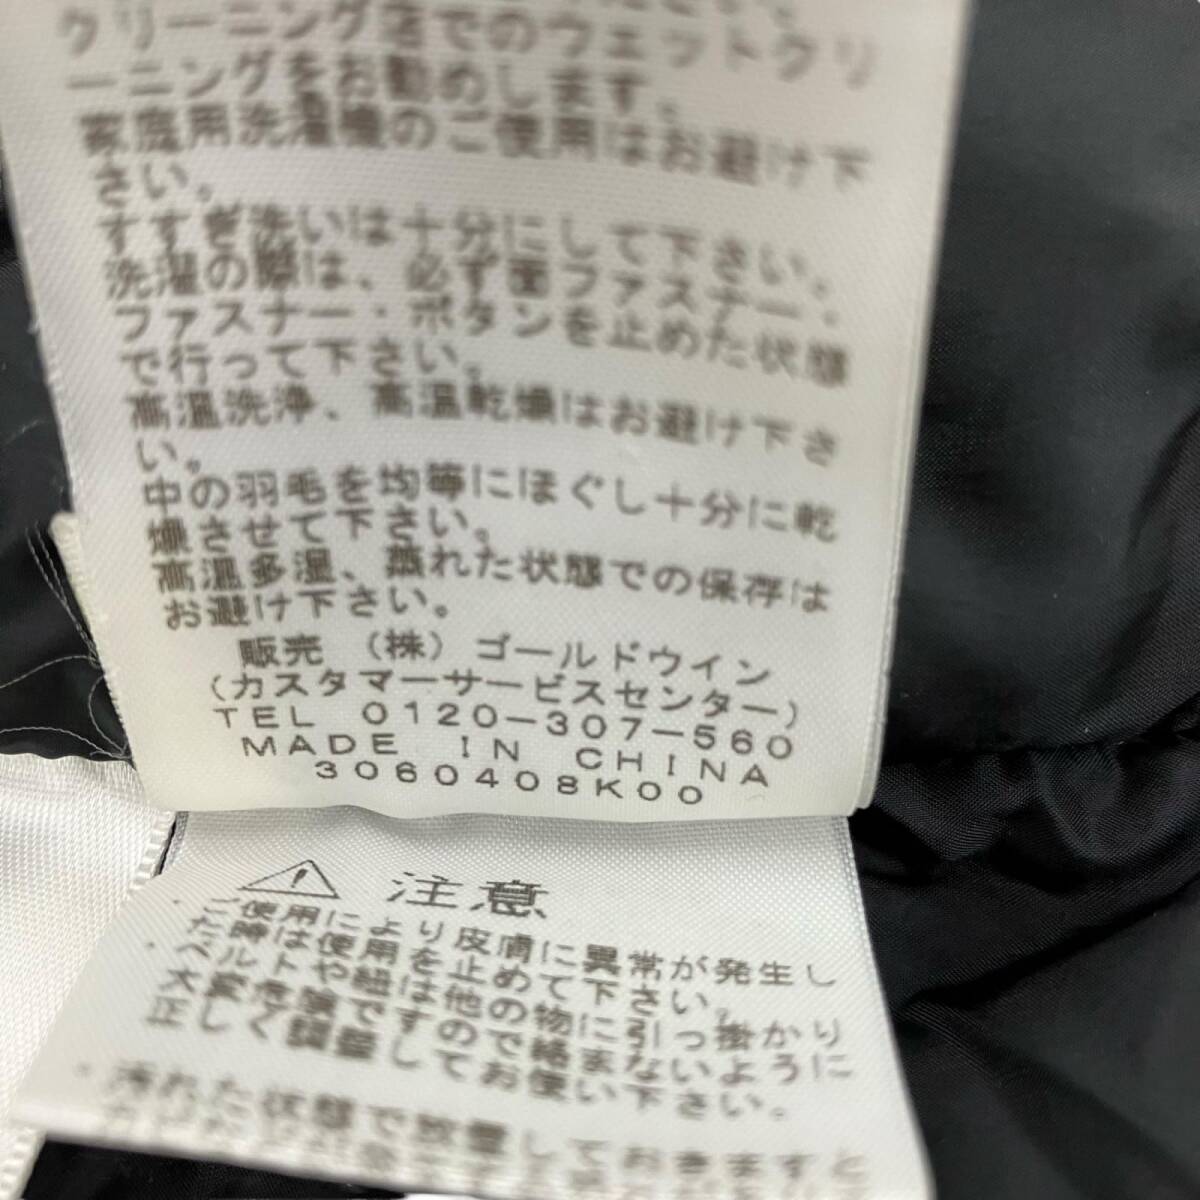 クリーニング店でのウェットクリ
ーニングをお勧めします。
家庭用洗濯機のご使用はお避け下
さい。
すすぎ洗いは十分にして下さい。
洗濯の際は、必ず面ファスナー・
ファスナー・ボタンを止めた状態
で行って下さい。
高温洗浄、高温乾燥はお避け下さ
い。
中の羽毛を均等にほぐし十分に乾
燥させて下さい。
高温多湿、蒸れた状態での保存は
お避け下さい。
販売 (株) ゴールドウイン
(カスタマーサービスセンター)
TEL 0120-307-560
MADE IN CHINA
3060408K00
注意
・ご使用により皮膚に異常が発生し
た時は使用を止めて下さい。
・ベルトや紐は他の物に引っ掛かり
大変危険ですので絡まないように
正しく調整してお使い下さい。
・汚れた状態で放置しておきますと